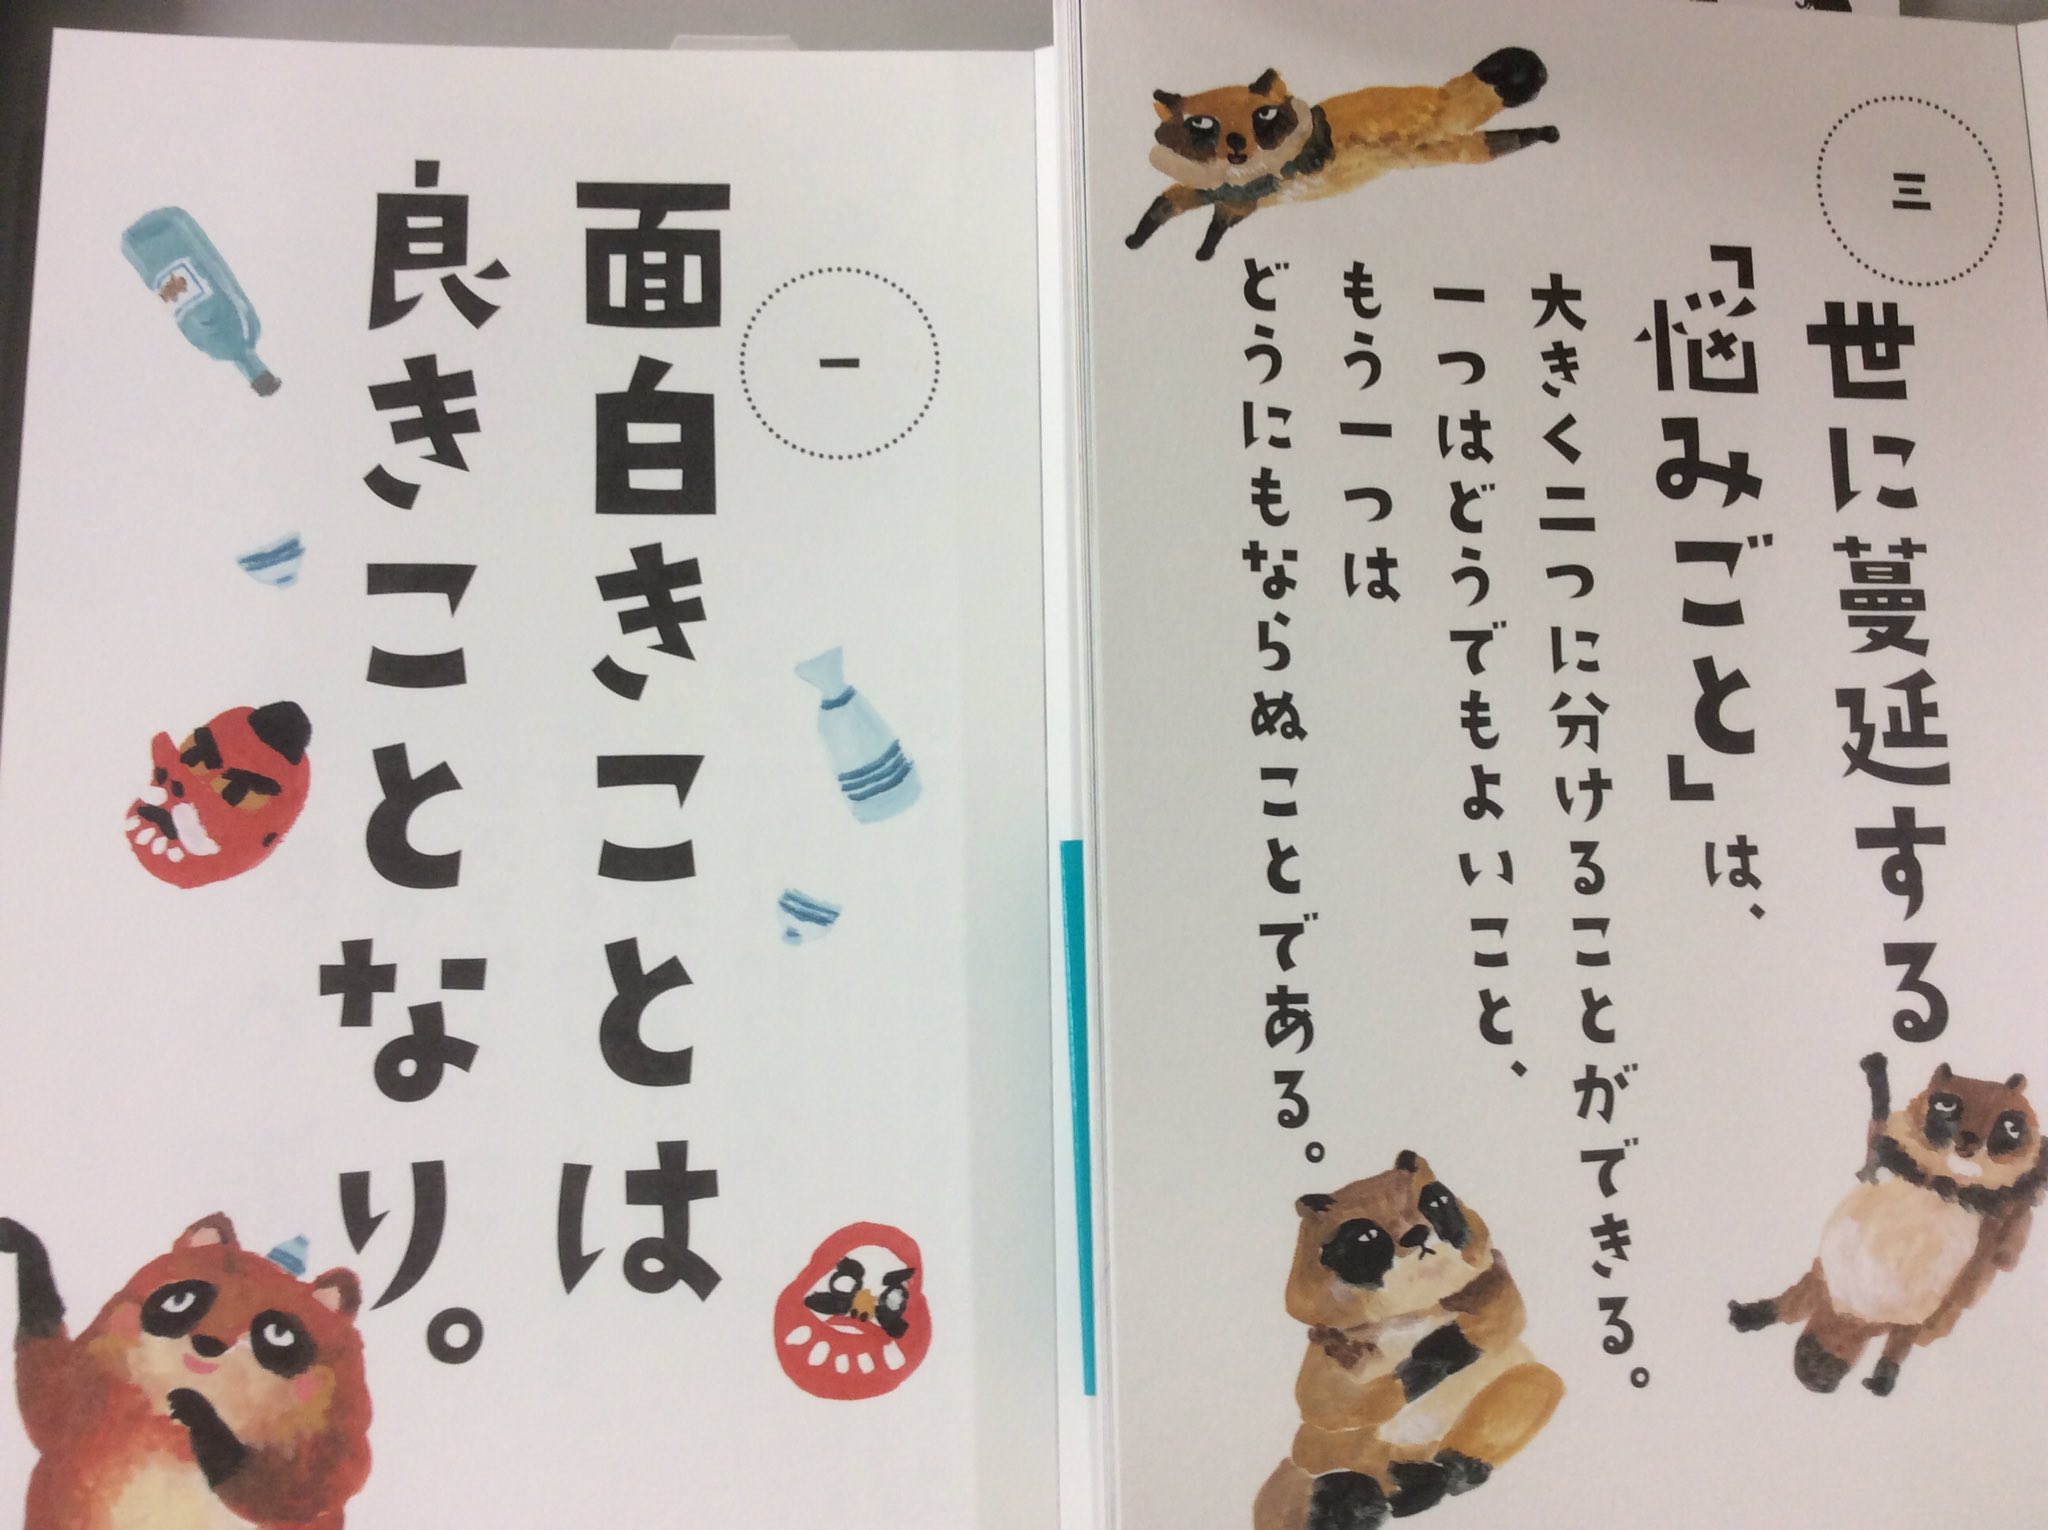 三
世に蔓延する
「悩みごと」は、
大きく二つに分けることができる。
一つはどうでもよいこと、
もう一つは
どうにもならぬことである。
一
面白きことは
良きことなり。